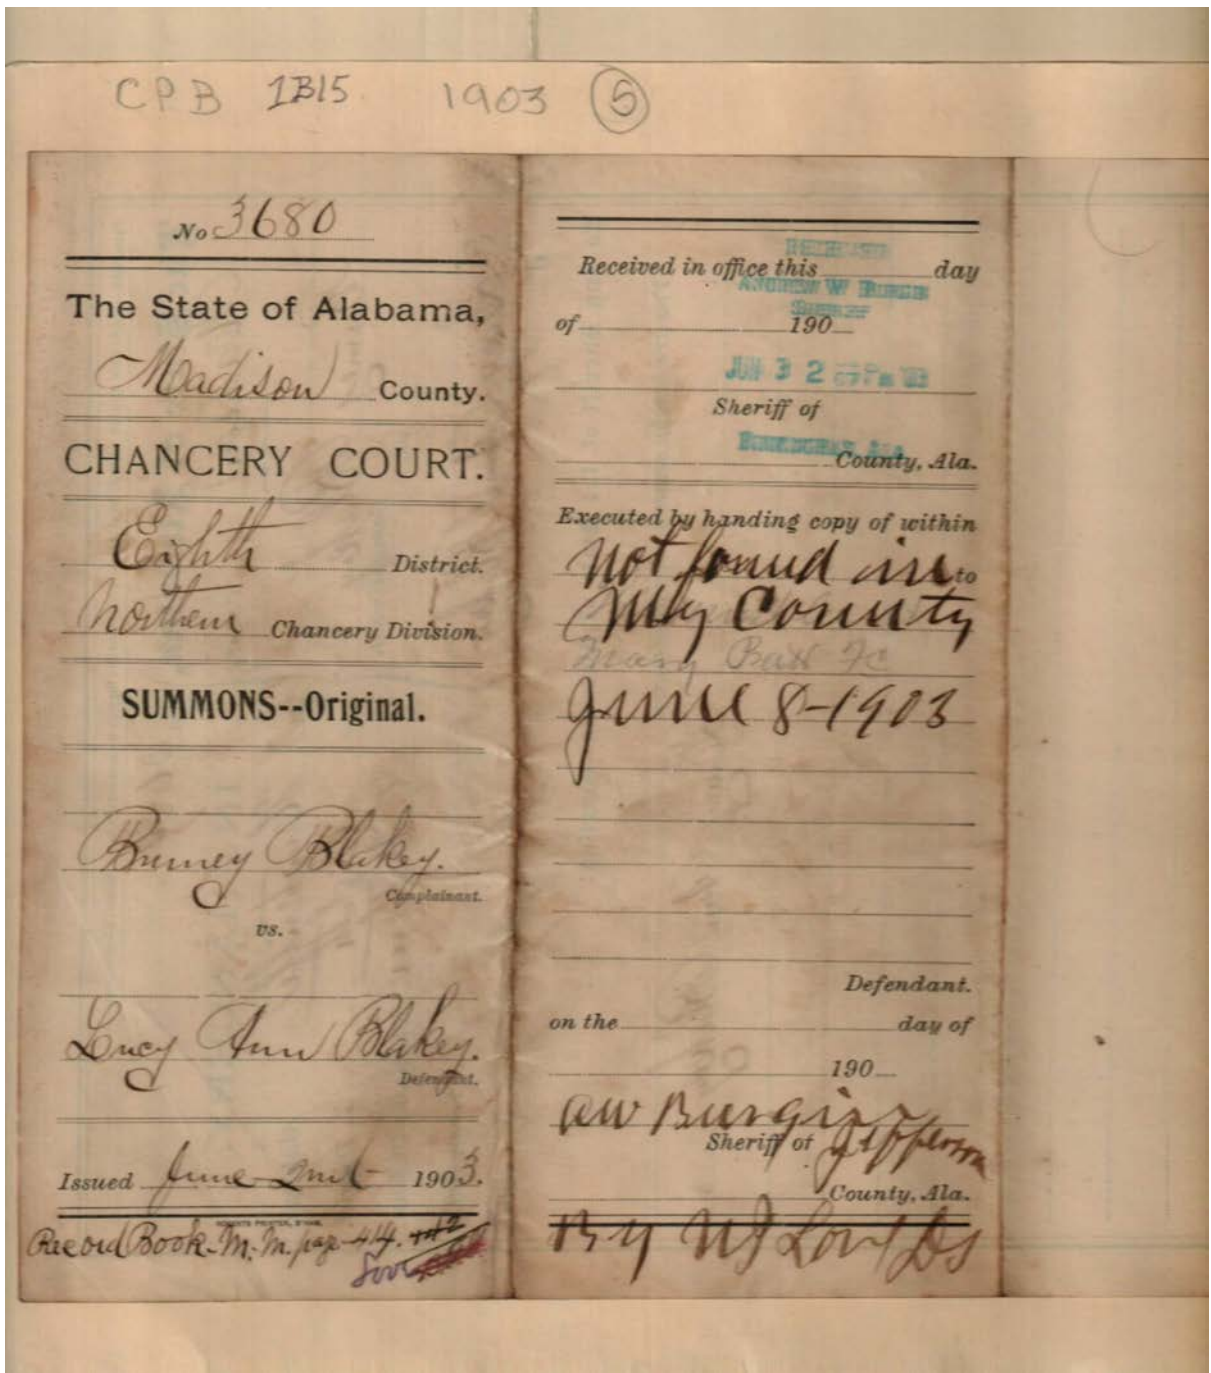 CPB 1B15 1903 5
No 3680
The State of Alabama,
Madison County.
CHANCERY COURT.
Eighth District.
Northern Chancery Division.
SUMMONS--Original.
Burney Blakey.
Complainant.
vs.
Lucy Ann Blakey.
Defendant.
Issued June 2nd 1903.
Record Book M. M. page 414.
RECEIVED
Received in office this day
ANDREW W BURGIN
SHERIFF
of 190
JUN 3 2 PM 03
Sheriff of
BIRMINGHAM, ALA.
County, Ala.
Executed by handing copy of within
not found in to
My County
Mary
June 8-1903
Defendant.
on the day of
190
AW Burgin
Sheriff of Jefferson
County, Ala.
By DS